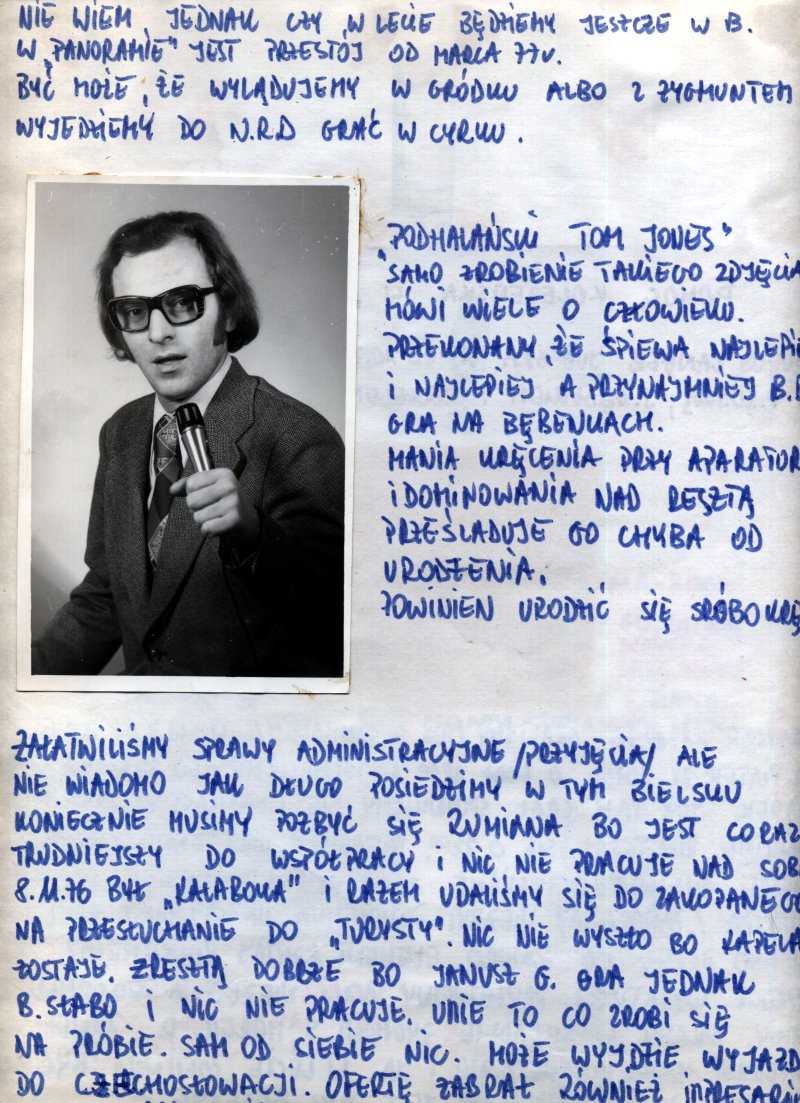 NIE WIEM JEDNAK CZY W LECIE BĘDZIEMY JESZCZE W B.
W „PANORAMIE" JEST PRZESTÓJ OD MARCA 77r.
BYĆ MOŻE, ŻE WYLĄDUJEMY W GRÓDKU ALBO Z ZYGMUNTEM
WYJEDZIEMY DO N.R.D GRAĆ W CYRKU.
„PODHALAŃSKI TOM JONES"
SAMO ZROBIENIE TAKIEGO ZDJĘCIA
MÓWI WIELE O CZŁOWIEKU.
PRZEKONANY, ŻE ŚPIEWA NAJLEPIE
I NAJLEPIEJ A PRZYNAJMNIEJ B.
GRA NA BĘBENKACH.
MANIA KRĘCENIA PRZY APARATUR
I DOMINOWANIA NAD RESZTĄ
PRZEŚLADUJE GO CHYBA OD
URODZENIA.
POWINIEN URODZIĆ SIĘ ŚRÓBOKRĘ
ZAŁATWILIŚMY SPRAWY ADMINISTRACYJNE /PRZYJĘCIA/ ALE
NIE WIADOMO JAK DŁUGO POSIEDZIMY W TYM BIELSKU
KONIECZNIE MUSIMY POZBYĆ SIĘ RUMIANA BO JEST CORAZ
TRUDNIEJSZY DO WSPÓŁPRACY I NIC NIE PRACUJE NAD SOB
8.11.76 BYŁ „KAŁABOKA" I RAZEM UDALIŚMY SIĘ DO ZAKOPANEGO
NA PRZESŁUCHANIE DO „TURYSTY". NIC NIE WYSZŁO BO KAPELA
ZOSTAJE. ZRESZTĄ DOBRZE BO JANUSZ G. GRA JEDNAK
B. SŁABO I NIC NIE PRACUJE. UMIE TO CO ZROBI SIĘ
NA PRÓBIE. SAM OD SIEBIE NIC. MOŻE WYJDZIE WYJAZD
DO CZECHOSŁOWACJI. OFERTĘ ZABRAŁ RÓWNIEŻ IMPRESARI